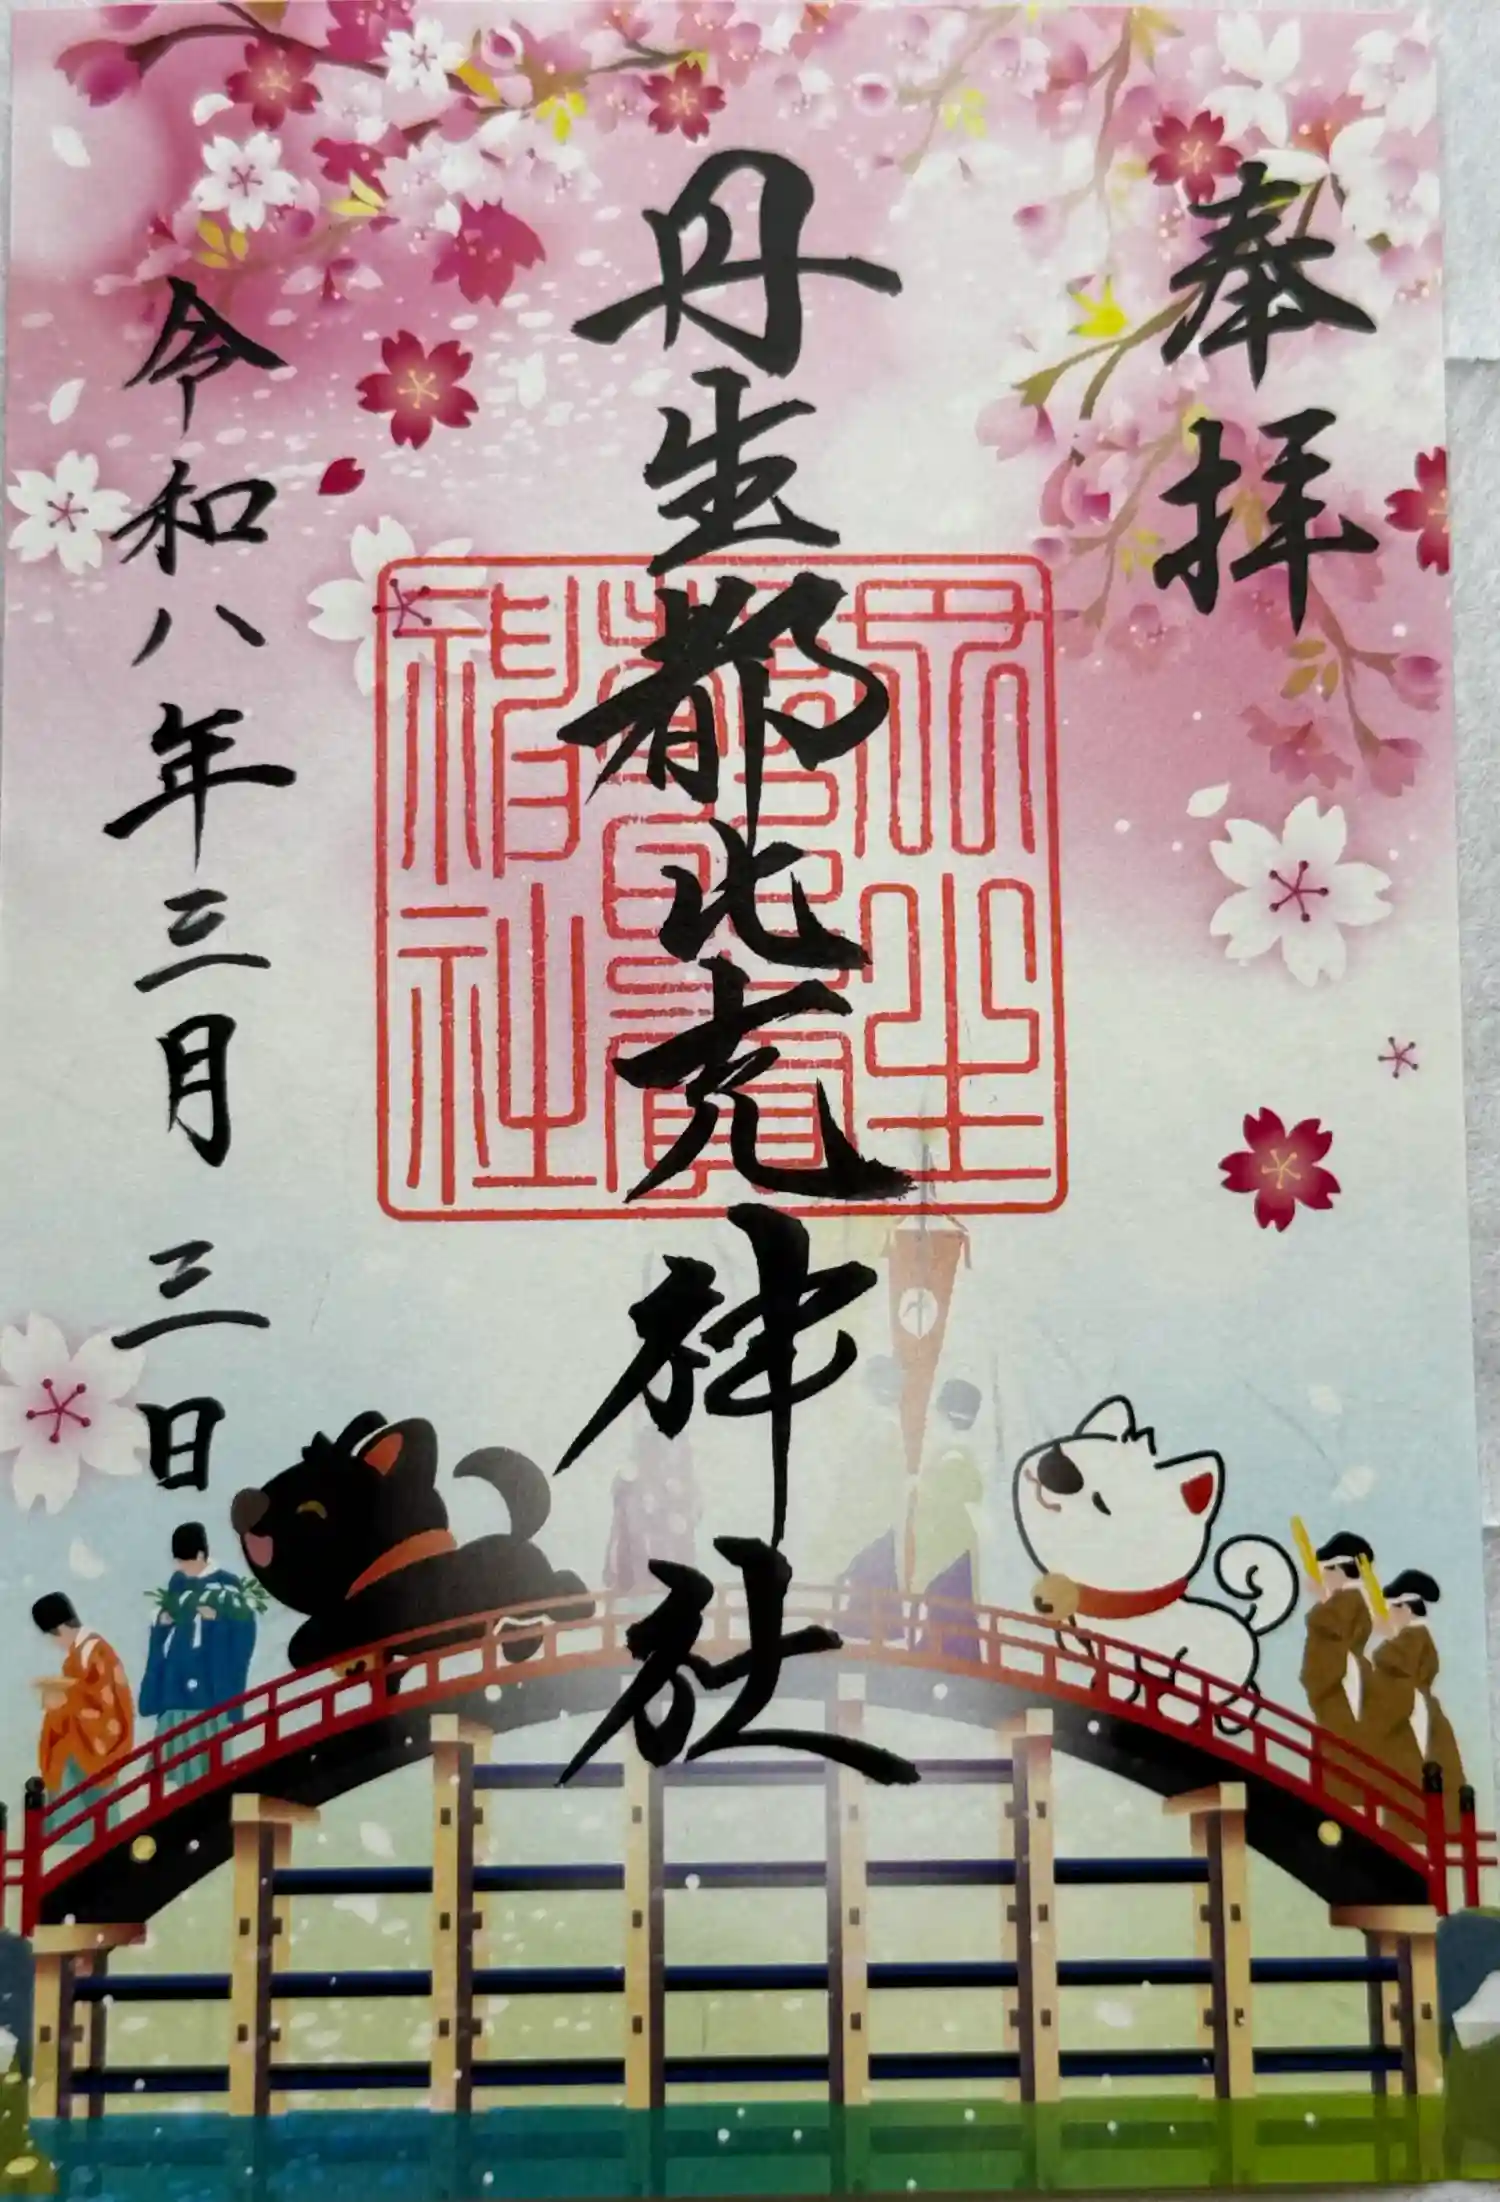 奉拝
丹生都比売神社
丹生都比賣神社
令和八年三月三日